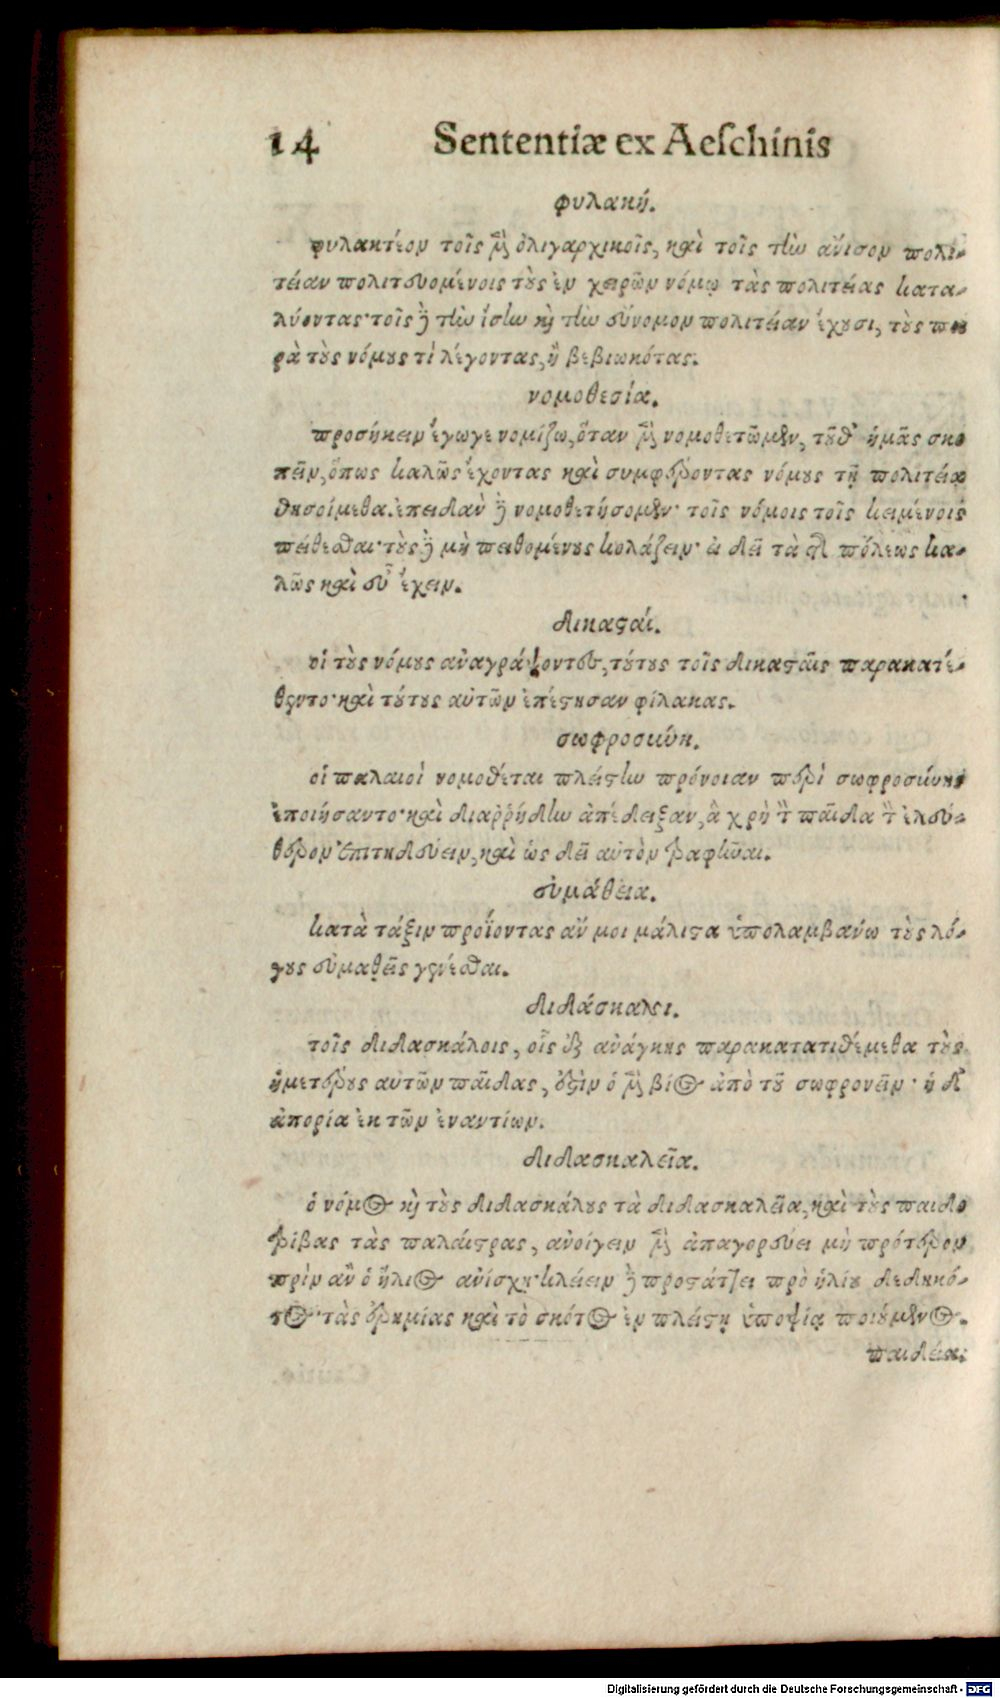 14 Sententiæ ex Aeſchinis
φυλακή.
φυλακτέον τοῖς μὲν ὀλιγαρχικοῖς, καὶ τοῖς τὴν ἄνισον πολι-
τείαν πολιτευομένοις τοὺς ἐν χειρῶν νόμῳ τὰς πολιτείας κατα-
λύοντας· τοῖς δὲ τὴν ἴσην καὶ τὴν σύνομον πολιτείαν ἔχουσι, τοὺς πα
ρὰ τοὺς νόμους τὶ λέγοντας, ἢ βεβιωκότας.
νομοθεσία.
προσήκειν ἔγωγε νομίζω, ὅταν μὲν νομοθετῶμεν, τοῦθ' ἡμᾶς σκο
πεῖν, ὅπως καλῶς ἔχοντας καὶ συμφέροντας νόμους τῇ πολιτείᾳ
θησοίμεθα. ἐπειδὰν δὲ νομοθετήσομεν· τοῖς νόμοις τοῖς κειμένοις
πείθεσθαι· τοὺς δὲ μὴ πειθομένους κολάζειν· εἰ δεῖ τὰ τῆς πόλεως κα-
λῶς καὶ εὖ ἔχειν.
δικασταί.
οἱ τοὺς νόμους ἀναγράψοντες, τούτους τοῖς δικασταῖς παρακατέ-
θεντο· καὶ τούτους αὐτῶν ἐπέστησαν φίλακας.
σωφροσύνη.
οἱ παλαιοὶ νομοθέται πλείστην πρόνοιαν περὶ σωφροσύνης
ἐποιήσαντο· καὶ διαῤῥήδην ἀπέδειξαν, ἃ χρὴ τὸν παῖδα τὸν ἐλεύ-
θερον ἐπιτηδεύειν, καὶ ὡς δεῖ αὐτὸν τραφῆναι.
εὐμάθεια.
κατὰ τάξιν προϊόντας ἄν μοι μάλιστα ὑπολαμβάνω τοὺς λό-
γους εὐμαθεῖς γενέσθαι.
διδάσκαλοι.
τοῖς διδασκάλοις, οἷς ἐξ ἀνάγκης παρακατατιθέμεθα τοὺς
ἡμετέρους αὐτῶν παῖδας, ἐστὶν ὁ μὲν βίος ἀπὸ τοῦ σωφρονεῖν· ἡ δ'
ἀπορία ἐκ τῶν ἐναντίων.
διδασκαλεῖα.
ὁ νόμος καὶ τοὺς διδασκάλους τὰ διδασκαλεῖα, καὶ τοὺς παιδο
τρίβας τὰς παλαίστρας, ἀνοίγειν μὲν ἀπαγορεύει μὴ πρότερον
πρὶν ἂν ὁ ἥλιος ἀνίσχῃ· κλείειν δὲ προστάττει πρὸ ἡλίου δεδηκό-
τος· τὰς ἐρημίας καὶ τὸ σκότος ἐν πλείστῃ ὑποψίᾳ ποιούμενος.
παιδεία.
Digitalisierung gefördert durch die Deutsche Forschungsgemeinschaft - DFG